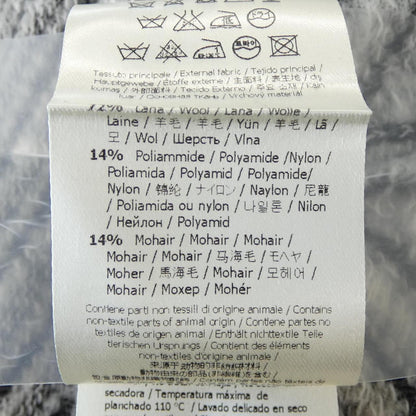 Tessuto principale / External fabric / Tejido principal /
Hauptgewebe / Étoffe externe / 主面料 / 表生地 /
kumaş / 外部面料 / Tecido Externo / 주요 소재 / Kain
luar / Основная ткань / Vrchový materiál
72% Lana / Wool / Lana / Wolle /
Laine / 羊毛 / 羊毛 / Yün / 羊毛 / Lã /
모 / Wol / Шерсть / Vlna
14% Poliammide / Polyamide /Nylon /
Poliamida / Polyamid / Polyamide/
Nylon / 锦纶 / ナイロン / Naylon / 尼龍
/ Poliamida ou nylon / 나일론 / Nilon
/ Нейлон / Polyamid
14% Mohair / Mohair / Mohair /
Mohair / Mohair / 马海毛 / モヘヤ /
Moher / 馬海毛 / Mohair / 모헤어 /
Mohair / Мохер / Mohér
Contiene parti non tessili di origine animale / Contains
non-textile parts of animal origin / Contiene partes no
textiles de origen animal / Enthält nichttextile Teile
tierischen Ursprungs / Contient des éléments
non-textiles d'origine animale /
来源于动物的非纺材料/
secadora / Temperatura máxima de
planchado 110 °C / Lavado delicado en seco